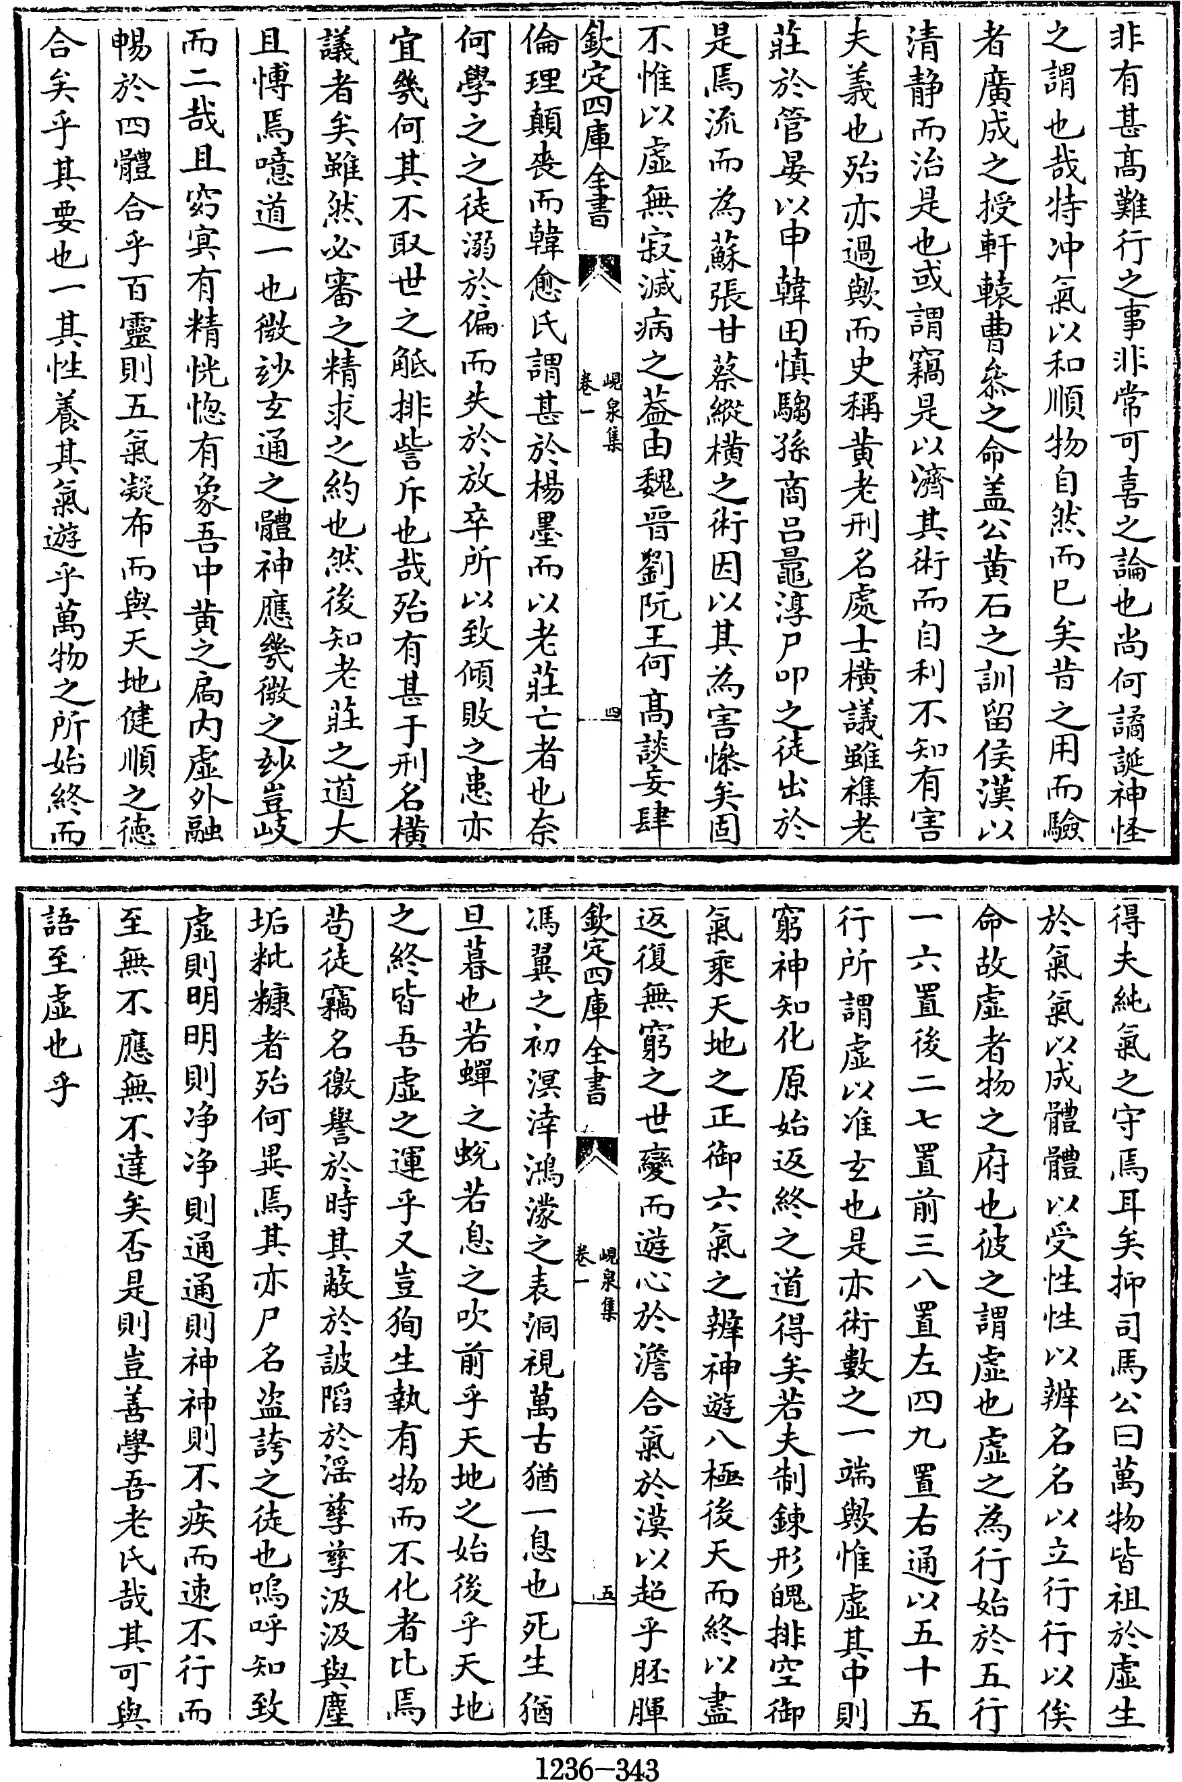 非有甚髙難行之事非常可喜之論也尚何譎誕神怪
之謂也哉特冲氣以和順物自然而已矣昔之用而驗
者廣成之授軒轅曹叅之命盖公黄石之訓留侯漢以
清静而治是也或謂竊是以濟其術而自利不知有害
夫義也殆亦過歟而史稱黄老刑名處士橫議雖襍老
莊於管晏以申韓田慎騶孫商吕鼂淳尸叩之徒出於
是焉流而為蘇張甘蔡縱橫之術因以其為害慘矣固
不惟以虚無寂滅病之葢由魏晉劉阮王何髙談妄肆
欽定四庫全書
峴泉集
卷一
四
倫理顛喪而韓愈氏謂甚於楊墨而以老莊亡者也奈
何學之之徒溺於偏而失於放卒所以致傾敗之患亦
宜幾何其不取世之觝排訾斥也哉殆有甚于刑名橫
議者矣雖然必審之精求之約也然後知老莊之道大
且博焉噫道一也微玅玄通之體神應幾微之玅豈岐
而二哉且窈冥有精恍惚有象吾中黄之扄内虚外融
暢於四體合乎百靈則五氣凝布而與天地健順之徳
合矣乎其要也一其性養其氣遊乎萬物之所始終而
得夫純氣之守焉耳矣抑司馬公曰萬物皆祖於虚生
於氣氣以成體體以受性性以辨名名以立行行以俟
命故虚者物之府也彼之謂虚也虚之為行始於五行
一六置後二七置前三八置左四九置右通以五十五
行所謂虚以准玄也是亦術數之一端歟惟虚其中則
窮神知化原始返終之道得矣若夫制鍊形魄排空御
氣乘天地之正御六氣之辨神遊八極後天而終以盡
返復無窮之世變而遊心於澹合氣於漠以超乎胚腪
欽定四庫全書
峴泉集
卷一
五
馮翼之初溟涬鴻濛之表洞視萬古猶一息也死生猶
旦暮也若蟬之蛻若息之吹前乎天地之始後乎天地
之終皆吾虚之運乎又豈狥生執有物而不化者比焉
苟徒竊名徼譽於時其蔽於詖陷於滛孳孳汲汲與塵
垢粃糠者殆何異焉其亦尸名盗誇之徒也嗚呼知致
虚則明明則净净則通通則神神則不疾而速不行而
至無不應無不達矣否是則豈善學吾老氏哉其可與
語至虚也乎
1236—343